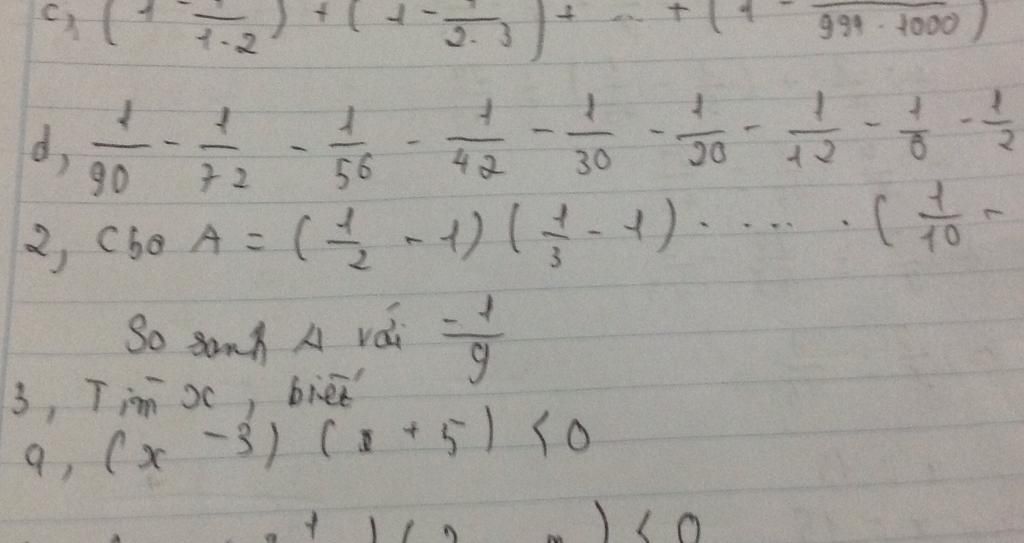 c, (1 - 1/1.2) + (1 - 1/2.3) + ... + (1 - 1/999.1000)
d, 1/90 - 1/72 - 1/56 - 1/42 - 1/30 - 1/20 - 1/12 - 1/6 - 1/2
2, Cho A = (1/2 - 1)(1/3 - 1) . .... . (1/10 -
So sánh A với -1/9
3, Tìm x, biết
a, (x - 3)(x + 5) < 0